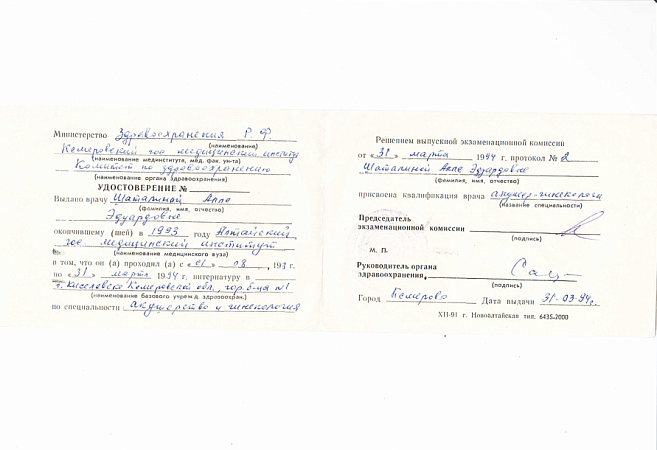 Министерство Здравоохранения Р.Ф.
(наименование)
Кемеровский гос медицинский институт
(наименование мединститута, мед. фак. ун-та)
Комитет по здравоохранению
(наименование органа здравоохранения)
УДОСТОВЕРЕНИЕ №
Выдано врачу Шаталиной Алле
(фамилия, имя, отчество)
Эдуардовне
окончившему (шей) в 1993 году Алтайский
гос. медицинский институт
(наименование медицинского вуза)
в том, что он (а) проходил (а) с «01» 08, 193 г.
по «31» марта 1994 г. интернатуру в
г. Киселевске Кемеровской обл., гор. б-ца №1
(наименование базового учрежд. здравоохран.)
по специальности акушерство и гинекология
Решением выпускной экзаменационной комиссии
от «31» марта 1994 г. протокол № 2
Шаталиной Алле Эдуардовне
(фамилия, имя, отчество)
присвоена квалификация врача акушер-гинеколога
(название специальности)
Председатель
экзаменационной комиссии
(подпись)
М. П.
Руководитель органа
здравоохранения,
(подпись)
Город Кемерово Дата выдачи 31.03.94г.
XII-91 г. Новоалтайская тип. 6435-2000